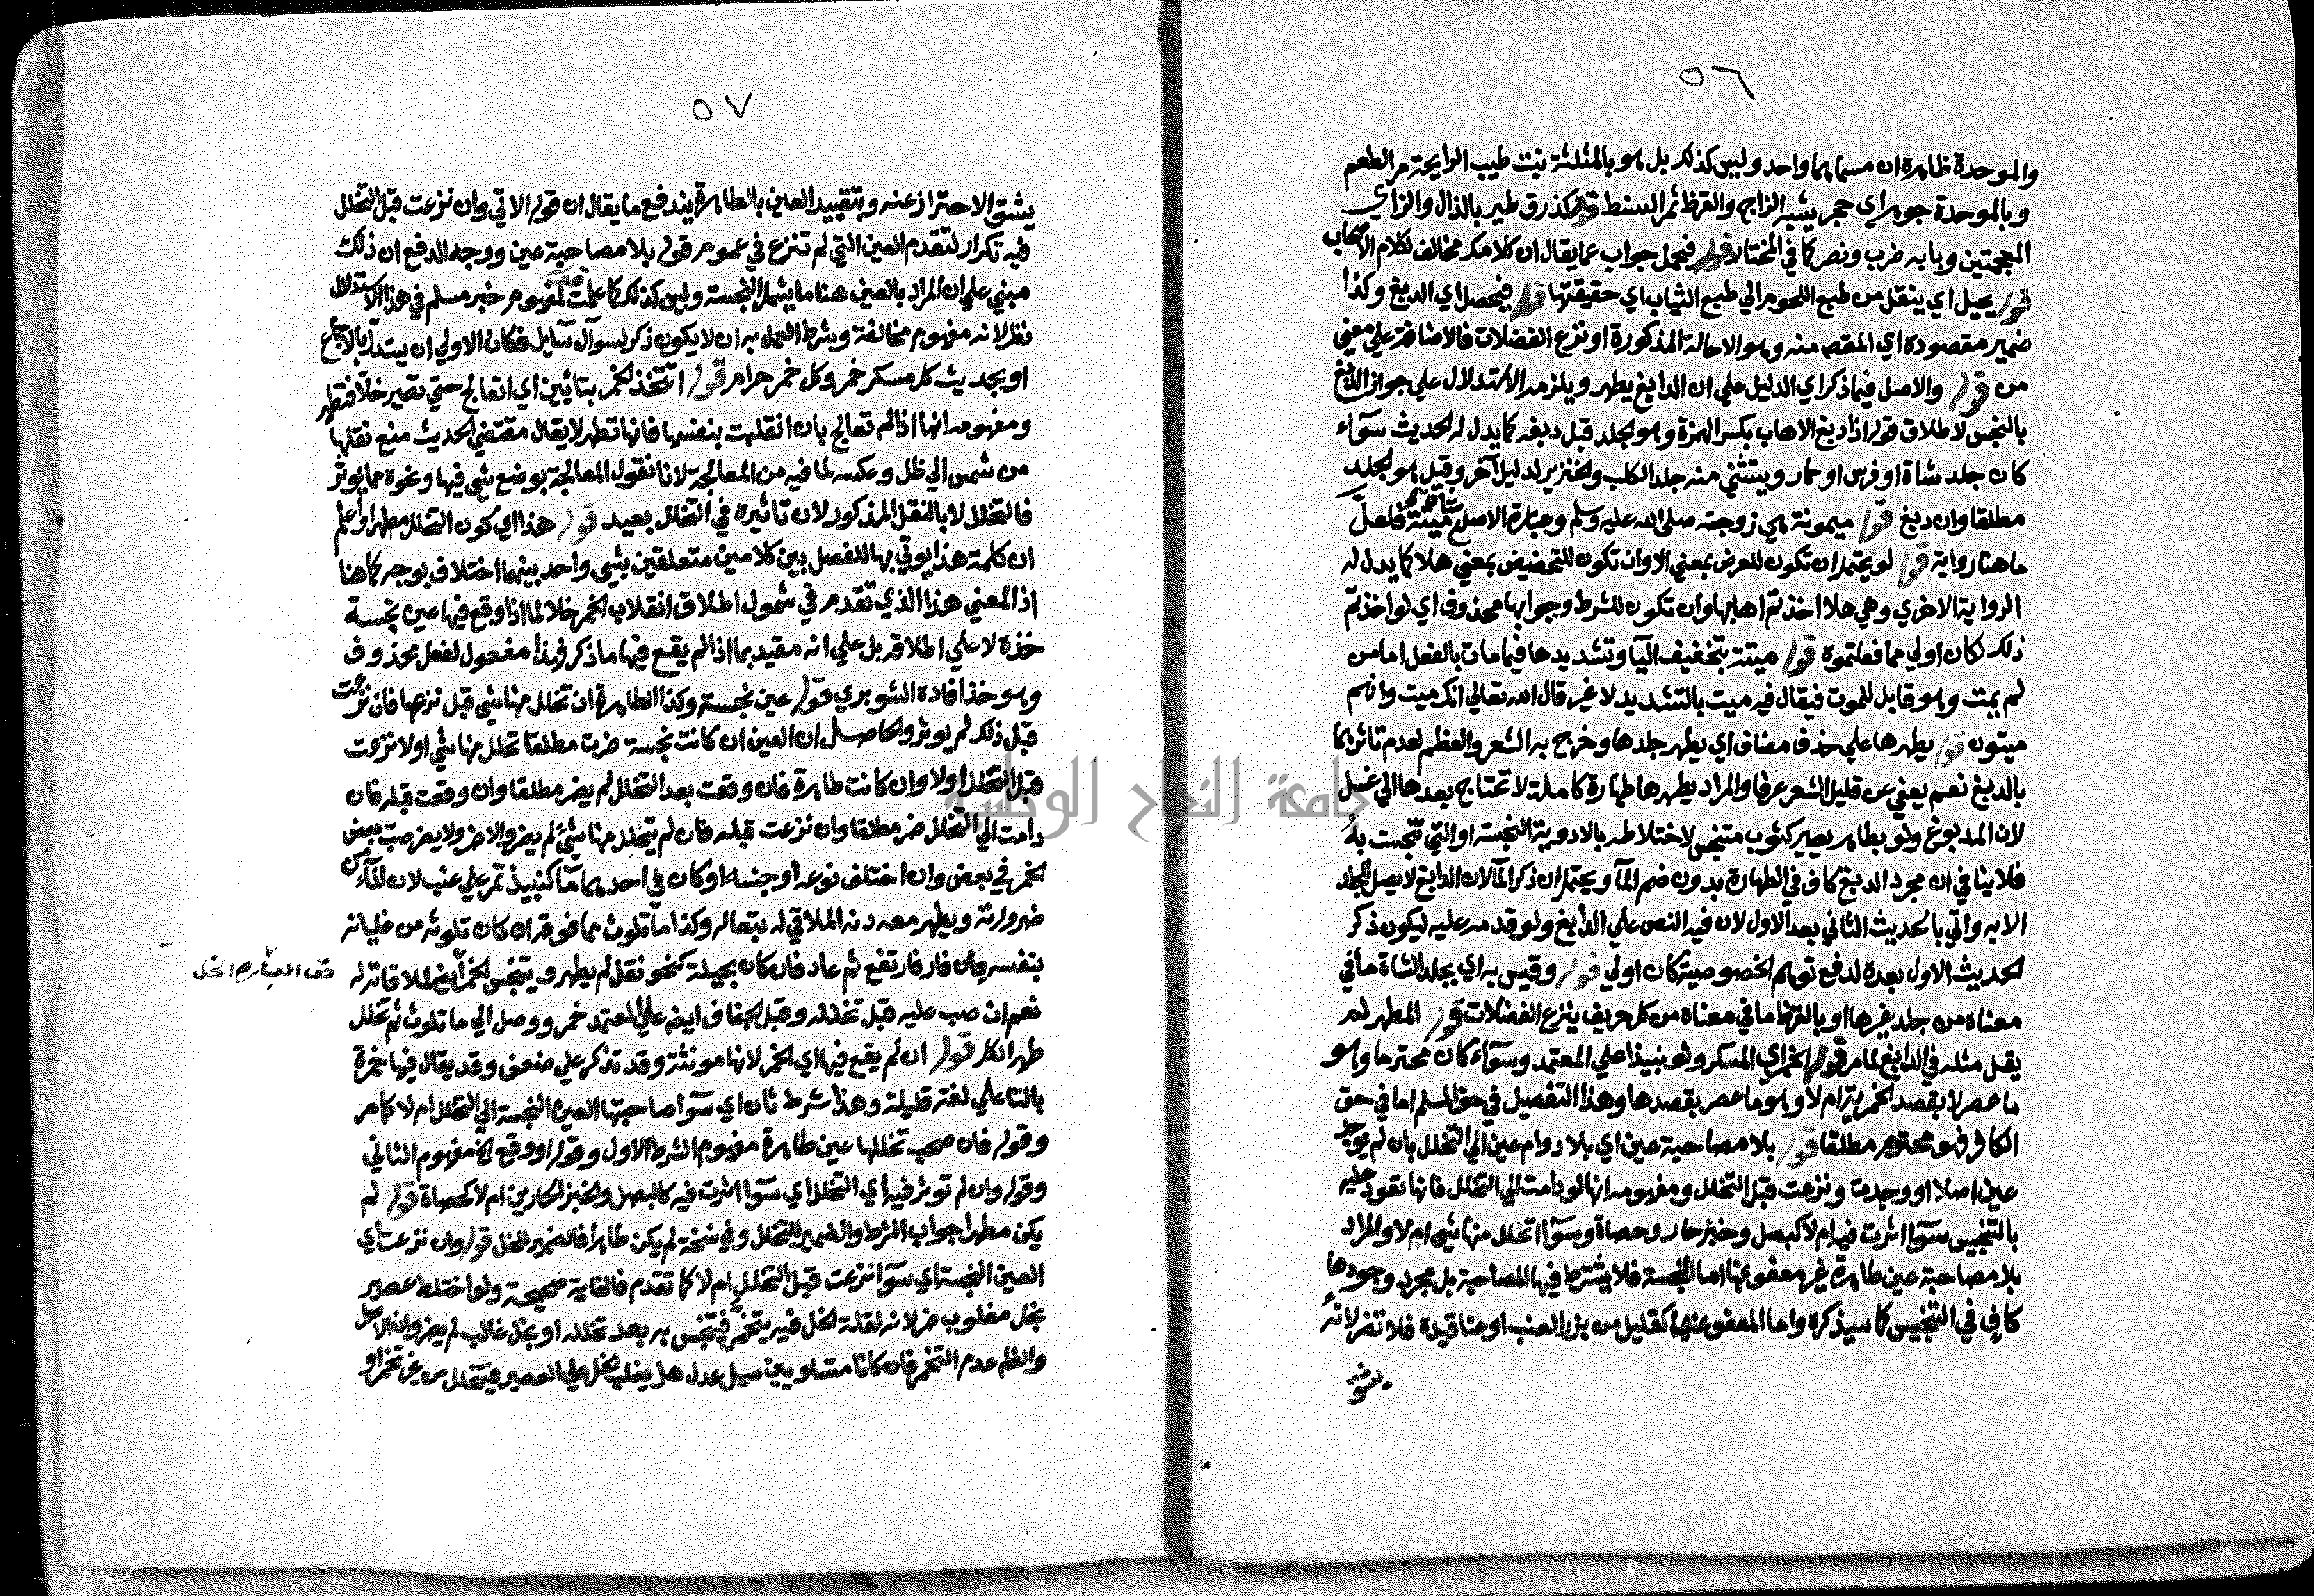 ٥٦
والموحدة ظاهره ان مسماهما واحد وليس كذلك بل هو بالمثلثة نبت طيب الرايحة مر الطعم
وبالموحدة جوهر اي حجر يشبه الزاج والقرظ ثمر السنط قوله كذرق طير بالذال والزاي
المعجمتين وبابه ضرب ونصر كما في المختار قوله فيحمل جواب عما يقال ان كلامك مخالف لكلام الاصحاب
قوله يحيل اي ينقل من طبع اللحوم الي طبع الثياب اي حقيقتها قوله فيحصل اي الدبغ وكذا
ضمير مقصوده اي المقصد منه وهو الاحالة المذكورة او نزع الفضلات فالاضافة علي معني
من قوله والاصل فيما ذكر اي الدليل علي ان الدابغ يطهر ويلزمه الاستدلال علي جواز الدبغ
بالنجس لاطلاق قوله اذا دبغ الاهاب بكسر الهمزة وهو الجلد قبل دبغه كما يدل له الحديث سوآء
كان جلد شاة او فرس او حمار ويستثني منه جلد الكلب والخنزير لدليل آخر وقيل هو الجلد
مطلقا وان دبغ قوله ميمونة هي زوجته صلي الله عليه وسلم وعبارة الاصل ميتة فلعل
ما هنا رواية قوله لو يحتمل ان تكون للعرض بمعني الا وان تكون للتحضيض بمعني هلا كما يدل له
الرواية الاخري وهي هلا اخذتم اهابها وان تكون للشرط وجوابها محذوف اي لو اخذتم
ذلك لكان اولي مما فعلتموه قوله ميتة بتخفيف اليآ وتشديدها فيما مات بالفعل اما من
لم يمت وهو قابل للموت فيقال فيه ميت بالتشديد لا غير قال الله تعالي انك ميت وانهم
ميتون قوله يطهرها علي حذف مضاف اي يطهر جلدها وخرج به الشعر والعظم لعدم تاثرهما
بالدبغ نعم يعفي عن قليل الشعر عرفا والمراد يطهرها طهارة كاملة لا تحتاج بعدها الي غسل
لان المدبوغ ولو بطاهر يصير كثوب متنجس لاختلاطه بالادوية النجسة او التي تنجست به
فلا ينافي ان مجرد الدبغ كاف في الطهارة بدون ضم المآ ويحتمل ان ذكر المآ لان الدابغ لا يصل للجلد
الا به واتي بالحديث الثاني بعد الاول لان فيه النص علي الدابغ ولو قدمه عليه ليكون ذكر
الحديث الاول بعده لدفع توهم الخصوصية كان اولي قوله وقيس به اي بجلد الشاة ما في
معناه من جلد غيرها او بالقرظ ما في معناه من كل حريف ينزع الفضلات قوله المطهر لم
يقل مثله في الدابغ لما مر قوله الخمر اي المسكر ولو نبيذا علي المعتمد وسوآء كان محترما وهو
ما عصر لا بقصد الخمرية ام لا وهو ما عصر بقصدها وهذا التفصيل في حق المسلم اما في حق
الكافر فهو محترم مطلقا قوله بلا مصاحبة عين اي بلا دوام عين الي التخلل بان لم يوجد
عين اصلا او وجدت ونزعت قبل التخلل ومفهومه انها لو دامت الي التخلل فانها تعود عليه
بالتنجيس سوآ اثرت فيه ام لا كبصل وخبز حار وحصاة وسوآ تحلل منها شي ام لا والمراد
بلا مصاحبة عين طاهرة غير معفو عنها اما النجسة فلا يشترط فيها المصاحبة بل مجرد وجودها
كاف في التنجيس كما سيذكره واما المعفو عنها كقليل من بزر العنب او عناقيده فلا تضر لانه
يشق
٥٧
يشق الاحتراز عنه وبتقييد العين بالطاهرة يندفع ما يقال ان قوله الاتي وان نزعت قبل التخلل
فيه تكرار لتقدم العين التي لم تنزع في عموم قوله بلا مصاحبة عين ووجه الدفع ان ذلك
مبني علي ان المراد بالعين هنا ما يشمل النجسة وليس كذلك كما علمت لمفهوم خبر مسلم في هذا الاستدلال
نظر لانه مفهوم مخالفة وشرط العمل به ان لا يكون ذكر لسوآل سايل فكان الاولي ان يستدل بالاجماع
او بحديث كل مسكر خمر وكل خمر حرام قوله اتتخذ الخمر بتائين اي اتعالج حتي تصير خلا فتطهر
ومفهومه انها اذا لم تعالج بان انقلبت بنفسها فانها تطهر لا يقال مقتضي الحديث منع نقلها
من شمس الي ظل وعكسه لما فيه من المعالجة لانا نقول المعالجة بوضع شي فيها ونحوه مما يوثر
فالتخلل لا بالنقل المذكور لان تاثيره في التخلل بعيد قوله هذا اي كون التخلل مطهرا واعلم
ان كلمة هذا يوتي بها للفصل بين كلامين متعلقين بشي واحد بينهما اختلاف بوجه كما هنا
اذ المعني هذا الذي تقدم في شمول اطلاق انقلاب الخمر خلا لما اذا وقع فيها عين نجسة
خذه لا علي اطلاقه بل علي انه مقيد بما اذا لم يقع فيها ما ذكر فهذا مفعول لفعل محذوف
وهو خذ افاده الشوبري قوله عين نجسة وكذا الطاهرة ان تحلل منها شي قبل نزعها فان نزعت
قبل ذلك لم يوثر والحاصل ان العين ان كانت نجسة ضرت مطلقا تحلل منها شي او لا نزعت
قبل التخلل او لا وان كانت طاهرة فان وقعت بعد التخلل لم يضر مطلقا وان وقعت قبله فان
دامت الي التخلل ضر مطلقا وان نزعت قبله فان لم يتحلل منها شي لم يضر والا ضر ولا يضر صب بعض
الخمر في بعض وان اختلف نوعه او جنسه او كان في احدهما مآ كنبيذ تمر علي عنب لان المآء من
ضرورته ويطهر معه دنه الملاقي له بتعاله وكذا ما تلوث مما فوقه ان كان تلوثه من غليانه
بنفسه وان فار فارتفع ثم عاد فان كان بحيلة كنحو نقل لم يطهر ويتنجس الخمر ايضا لملاقاته له
قف العبارة الخل
نعم ان صب عليه قبل تخلله وقبل الجفاف ايضا علي المعتمد خمر ووصل الي ما تلوث ثم تخلل
طهر الكل قوله ان لم يقع فيها اي الخمر لانها مونثة وقد تذكر علي ضعف وقد يقال فيها خمرة
بالتا علي لغة قليلة وهذا شرط ثان اي سوآ صاحبتها العين النجسة الي التخلل ام لا كما مر
وقوله فان صحب تخللها عين طاهرة مفهوم الشرط الاول وقوله او وقع الخ مفهوم الثاني
وقوله وان لم توثر فيه اي التخلل اي سوآ اثرت فيه كالبصل والخبز الحارين ام لا كحصاة قوله لم
يكن مطهرا جواب الشرط والضمير للتخلل وفي نسخة لم يكن طاهرا فالضمير للخل قوله وان نزعت اي
العين النجسة اي سوآ نزعت قبل التخلل ام لا كما تقدم فالغاية صحيحة ولو اختلط عصير
بخل مغلوب ضر لانه لقلة الخل فيه يتخمر فيتنجس به بعد تخلله او بخل غالب لم يضر لان الاصل
والظاهر عدم التخمر فان كانا متساويين سيل عدل هل يغلب الخل علي العصير فيتخلل من غير تخمر او